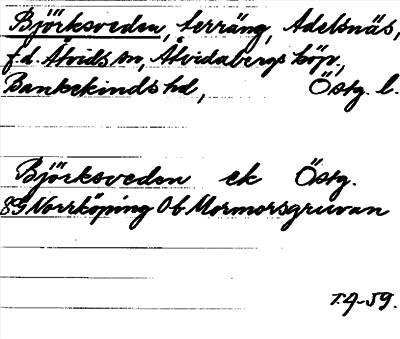 Björksveden, terräng, Adelsnäs,
f.d. Åtvids sn, Åtvidabergs köp.,
Bankekinds hd, Östg. l.
Björksveden ek Östg.
8G Norrköping 0b Mormorsgruvan
T.4-59.